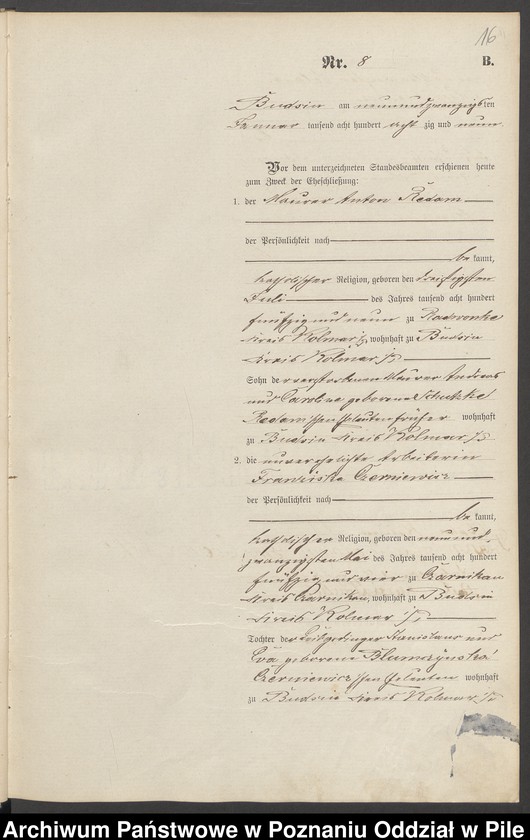 16
Nr. 8 B.
Budsin am neunundzwanzigsten
Januar tausend acht hundert acht zig und neun
Vor dem unterzeichneten Standesbeamten erschienen heute
zum Zweck der Eheschließung:
1. der Maurer Anton Redam
der Persönlichkeit nach
be kannt,
katholischer Religion, geboren den dreißigsten
Juli des Jahres tausend acht hundert
fünfzig und neun zu Radwonke
Kreis Kolmar i/P, wohnhaft zu Budsin
Kreis Kolmar i/P
Sohn der verstorbenen Maurer Andreas
und Caroline geborene Schulzke
Redam'schen Eheleuten früher wohnhaft
zu Budsin Kreis Kolmar i/P
2. die unverehelichte Arbeiterin
Franziska Czerniewicz
der Persönlichkeit nach
be kannt,
katholischer Religion, geboren den neunund-
zwanzigsten Mai des Jahres tausend acht hundert
fünfzig und vier zu Czarnikau
Kreis Czarnikau, wohnhaft zu Budsin
Kreis Kolmar i/P
Tochter der Leibgedinger Stanislaus und
Eva geborene Blumczynska
Czerniewicz'schen Eheleuten wohnhaft
zu Budsin Kreis Kolmar i/P
Archiwum Państwowe w Poznaniu Oddział w Pile